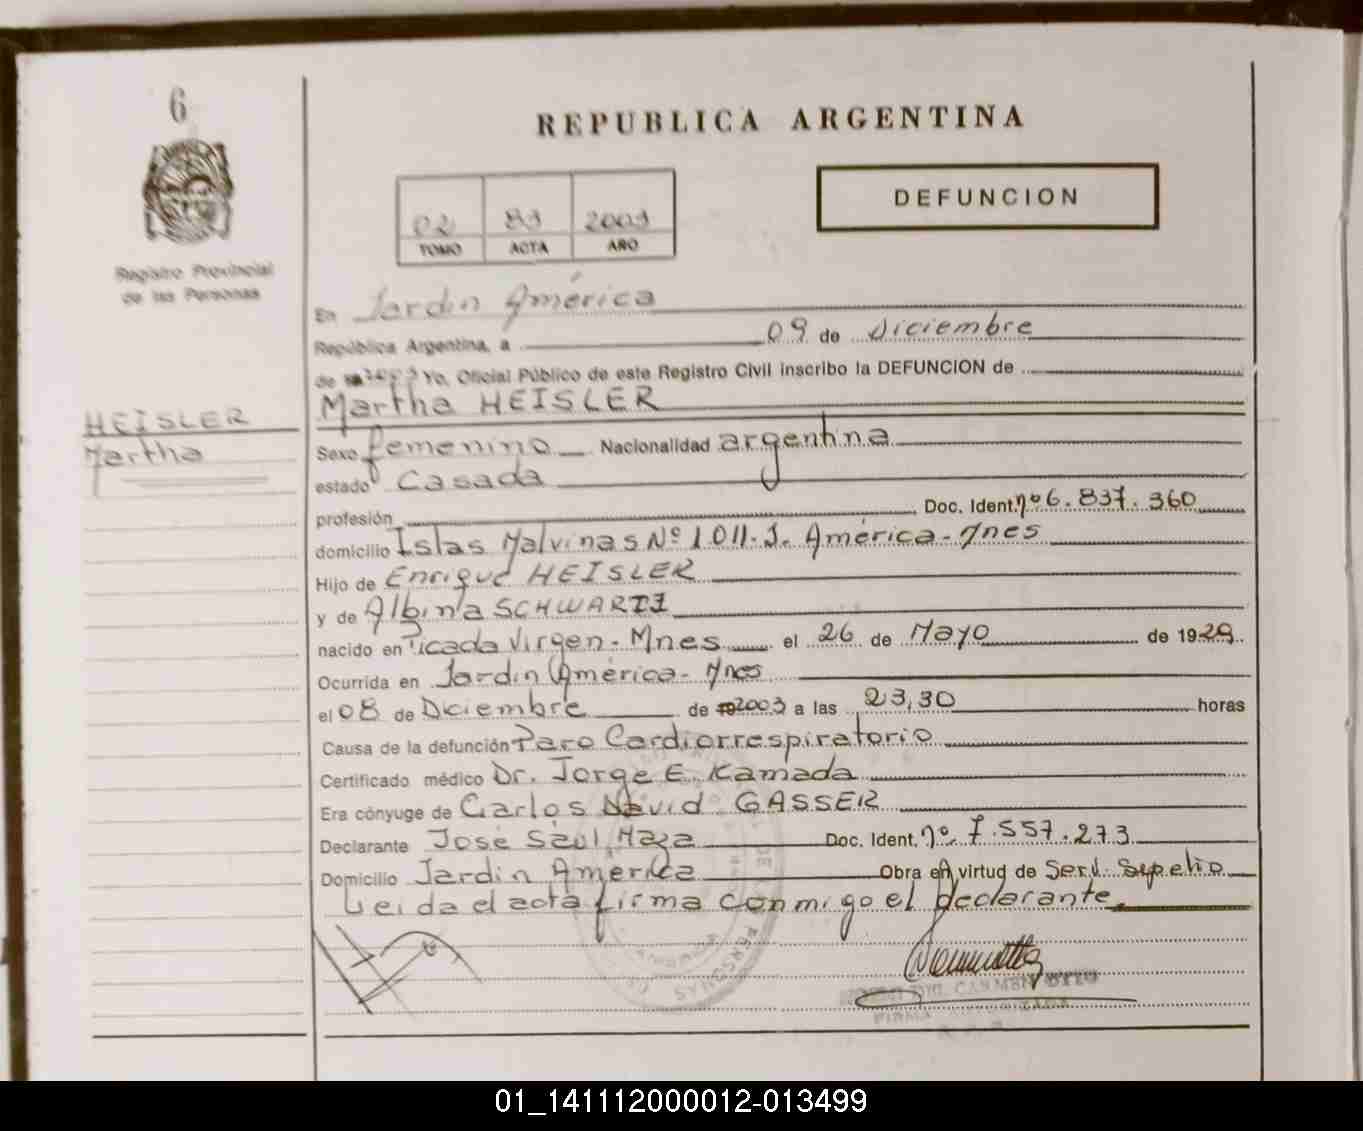 6
REPUBLICA ARGENTINA
DEFUNCION
02 83 2003
TOMO ACTA AÑO
Registro Provincial
de las Personas
En Jardin América
República Argentina, a 09 de Diciembre
de 2003 Yo, Oficial Público de este Registro Civil inscribo la DEFUNCION de
Martha HEISLER
HEISLER
Martha
Sexo femenino Nacionalidad argentina
estado Casada
profesión Doc. Ident. nº 6.837.360
domicilio Islas Malvinas Nº 1011-J. América-Mnes
Hijo de Enrique HEISLER
y de Albina SCHWARTZ
nacido en Picada Virgen-Mnes el 26 de Mayo de 1929
Ocurrida en Jardin América-Mnes
el 08 de Diciembre de 2003 a las 23,30 horas
Causa de la defunción Paro Cardiorrespiratorio
Certificado médico Dr. Jorge E. Kamada
Era cónyuge de Carlos David GASSER
Declarante José Saúl Maza Doc. Ident. nº 7.557.273
Domicilio Jardin América Obra en virtud de Serv. Sepelio
Leida el acta firma conmigo el declarante.
01_141112000012-013499